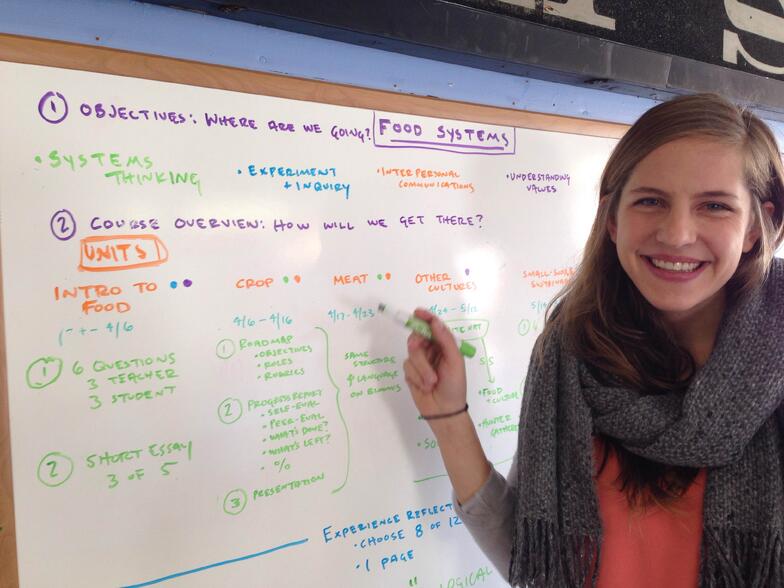 ① OBJECTIVES: WHERE ARE WE GOING? FOOD SYSTEMS
• SYSTEMS THINKING
• EXPERIMENT + INQUIRY
• INTERPERSONAL COMMUNICATIONS
• UNDERSTANDING VALUES
② COURSE OVERVIEW: HOW WILL WE GET THERE?
UNITS
INTRO TO FOOD
4/6
① 6 QUESTIONS
3 TEACHER
3 STUDENT
② SHORT ESSAY
3 OF 5
CROP
4/6 - 4/16
① ROADMAP
• OBJECTIVES
• ROLES
• RUBRICS
② PROGRESS REPORT
• SELF-EVAL
• PEER-EVAL
• WHAT'S DONE?
• WHAT'S LEFT?
• %
③ PRESENTATION
MEAT
4/17 - 4/23
SAME
STRUCTURE
LANGUAGE
ON
OTHER
CULTURES
4/24 - 5/12
• FOOD
• HUNTER
SMALL-SCALE
①
EXPERIENCE REFLECT
• CHOOSE 8 OF 12
• 1 PAGE
LOGICAL